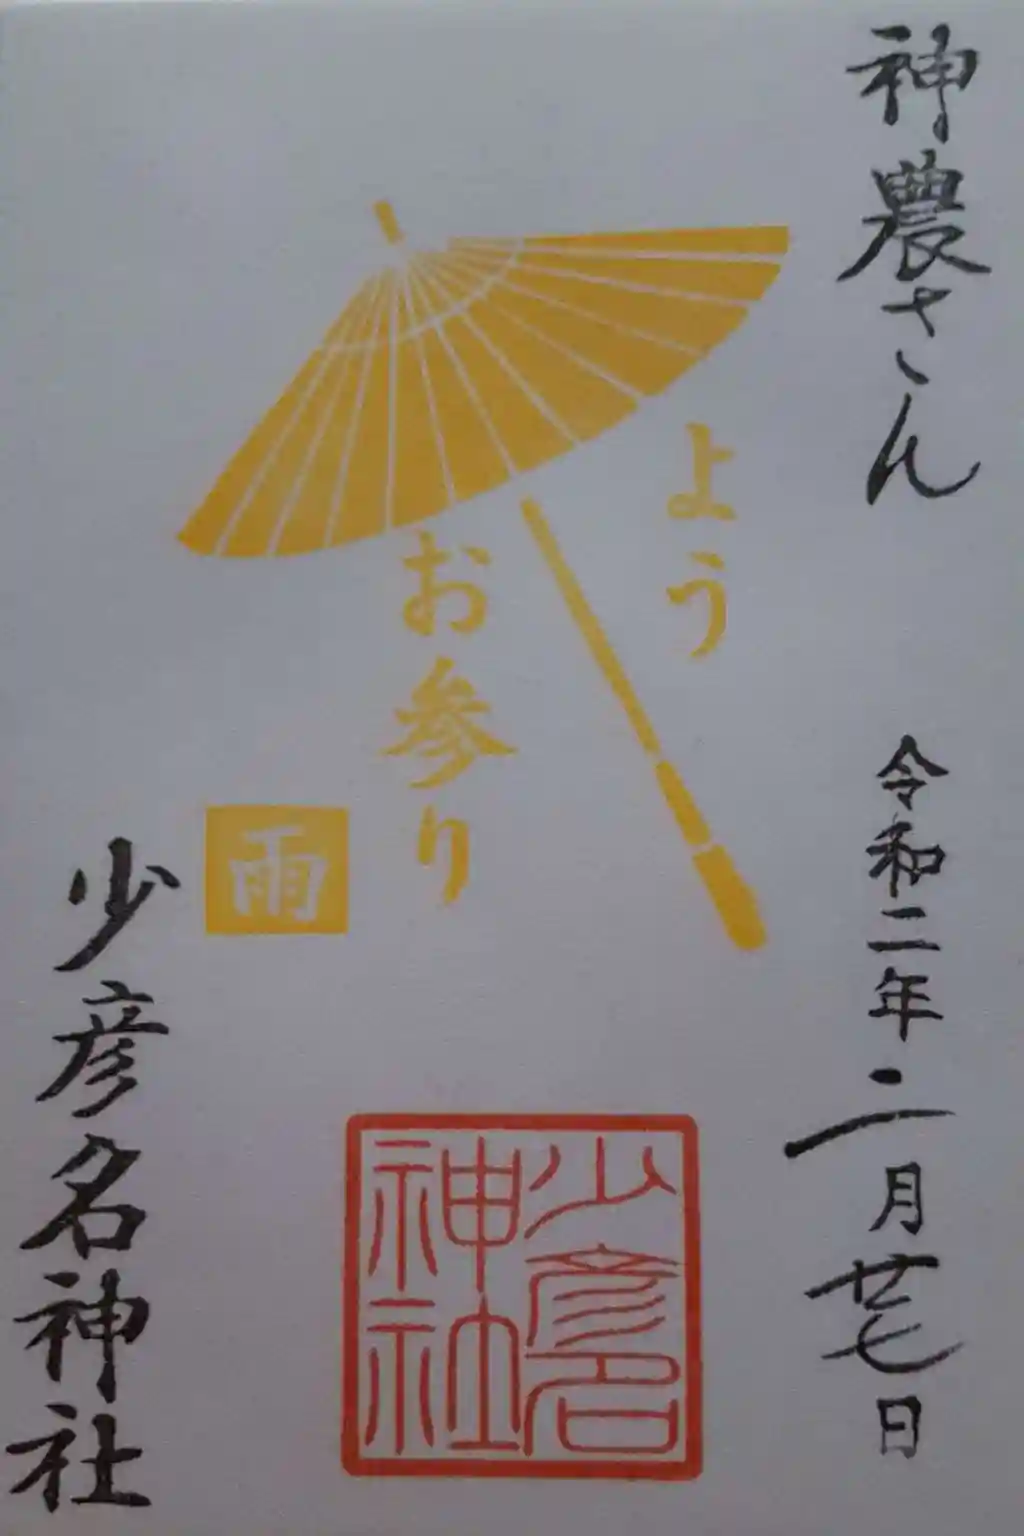 神農さん
令和二年二月廿七日
よう
お参り
雨
少彦名神社
少彦名
神社